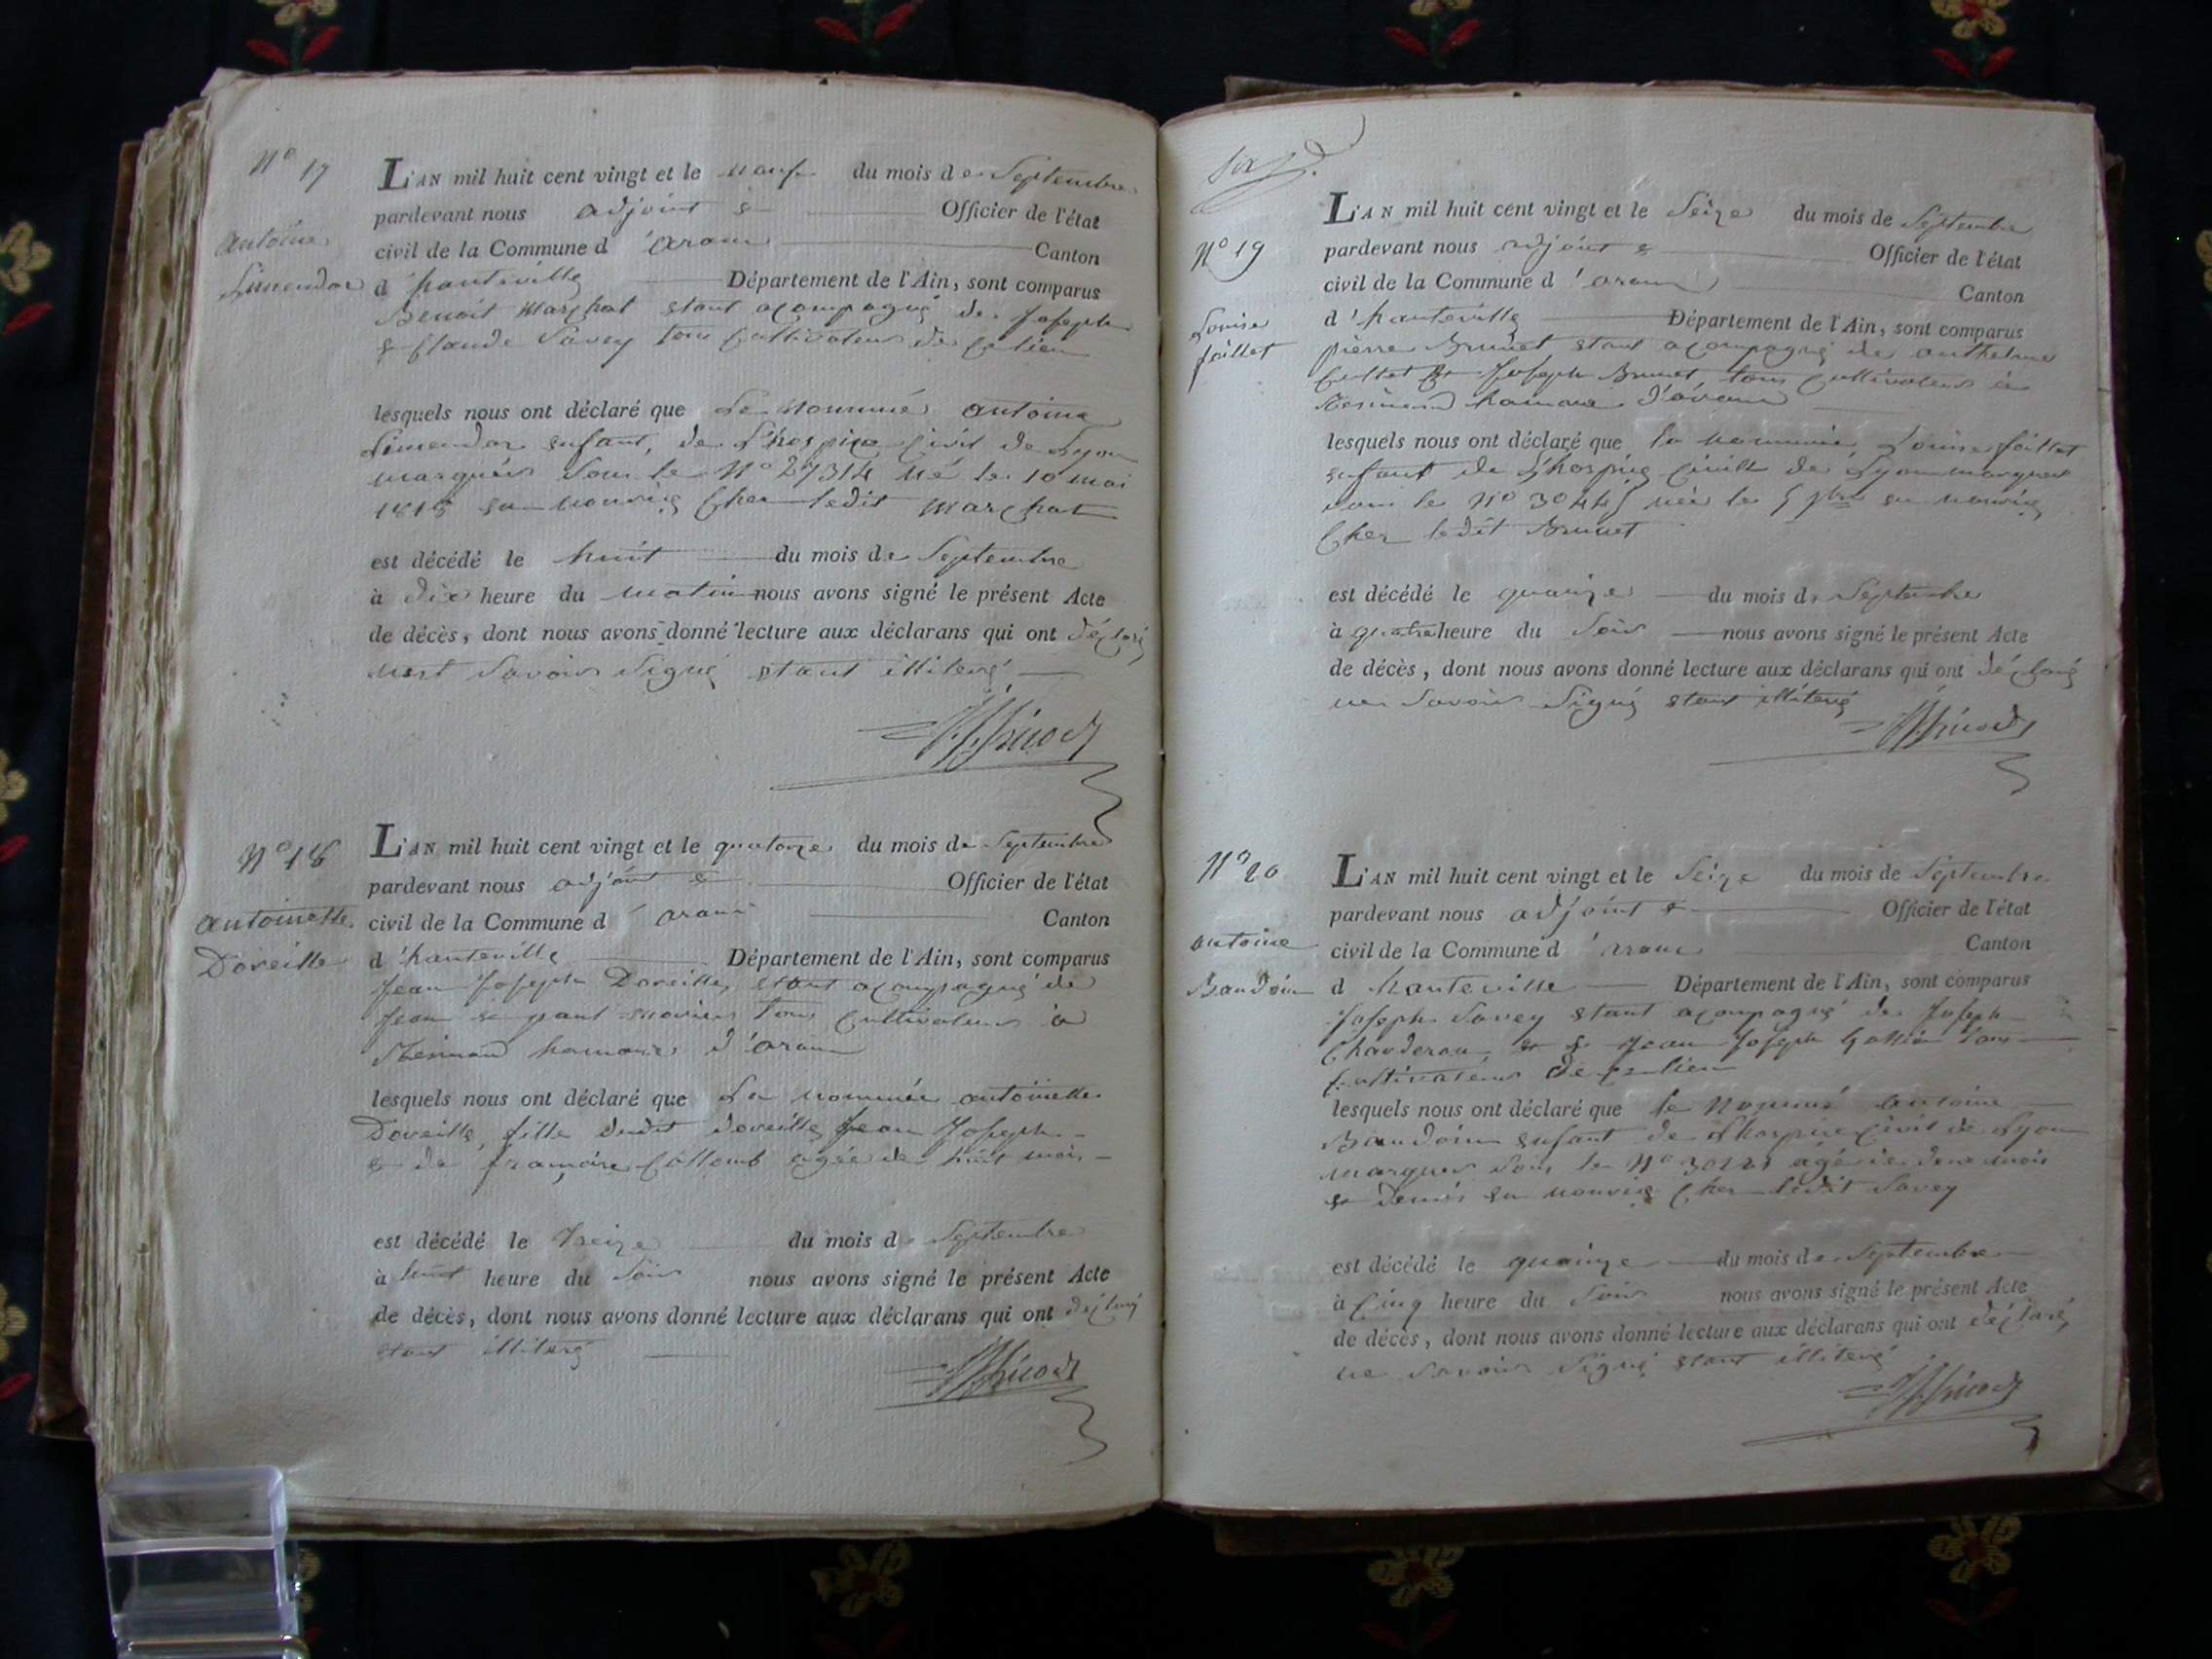 N° 17
L'AN mil huit cent vingt et le neuf du mois de Septembre
pardevant nous adjoint & Officier de l'état
antoine
civil de la Commune d 'aranc Canton
Limendor
d 'hauteville Département de l'Ain, sont comparus
Benoit Marchat etant acompagné de Joseph
& Claude Savey tous Cultivateurs de ce lieu
lesquels nous ont déclaré que Le nommé antoine
Limendor enfant, de L'hospice Civil de Lyon
marqués Sous le N° 27314 né le 10 mai
en nourice Cher ledit Marchat
est décédé le huit du mois de Septembre
à dix heure du matin nous avons signé le présent Acte
de décès, dont nous avons donné lecture aux déclarans qui ont déclaré
Savoir Signé etant illiteré
N° 18
L'AN mil huit cent vingt et le quatorze du mois de Septembre
pardevant nous adjoint & Officier de l'état
antoinette
civil de la Commune d 'aranc Canton
Doreille
d 'hauteville Département de l'Ain, sont comparus
Jean Joseph Doreille, etant acompagné de
Jean tous Cultivateurs à
hamaux d'aranc
lesquels nous ont déclaré que La nommée antoinette
Doreille, fille dudit doreille Jean Joseph
& de Collomb agée de huit mois
est décédé le treize du mois de Septembre
à huit heure du Soir nous avons signé le présent Acte
de décès, dont nous avons donné lecture aux déclarans qui ont déclaré
etant illiteré
Six
L'AN mil huit cent vingt et le Seize du mois de Septembre
N° 19
pardevant nous adjoint & Officier de l'état
civil de la Commune d 'aranc Canton
Louise
d 'hauteville Département de l'Ain, sont comparus
faillet
pierre Brunet etant acompagné de anthelme
Cullet & Joseph Brunet, tous Cultivateurs à
hamaux d'aranc
lesquels nous ont déclaré que la nommée Louise faillet
enfant de L'hospice Civill de Lyon marqués
sous le N° 30445 née le 5 en nourice
Cher ledit Brunet
est décédé le quainze du mois de Septembre
à quatre heure du Soir nous avons signé le présent Acte
de décès, dont nous avons donné lecture aux déclarans qui ont déclaré
ne Savoir Signé etant illiteré
N° 20
L'AN mil huit cent vingt et le Seize du mois de Septembre
pardevant nous adjoint & Officier de l'état
antoine
civil de la Commune d 'aranc Canton
Baudoin
d hauteville Département de l'Ain, sont comparus
Joseph Savey etant acompagné de Joseph
Charderon & Jean Joseph tous
Cultivateurs de ce lieu
lesquels nous ont déclaré que le Nommé antoine
Baudoin enfant de L'hospice Civil de Lyon
marqués Sous le N° agé de deux mois
& demis en nourice Cher ledit Savey
est décédé le quainze du mois de Septembre
à Cinq heure du Soir nous avons signé le présent Acte
de décès, dont nous avons donné lecture aux déclarans qui ont déclaré
ne Savoir Signé etant illiteré